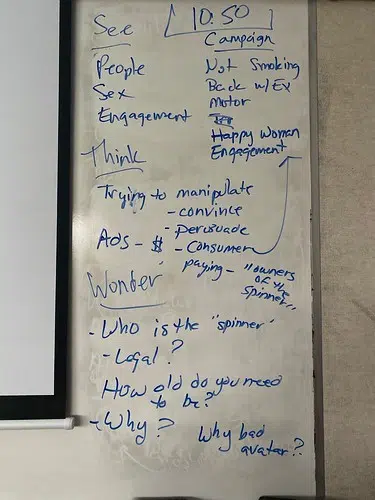 See
People
Sex
Engagement
10.50
Campaign
Not Smoking
Back w/Ex
Motor
Happy Woman
Engagement
Think
Trying to manipulate
- convince
- persuade
Ads - $ - Consumer
paying - "owners
of the
spinner"
Wonder
- Who is the "spinner"
- Legal?
How old do you need
to be?
- Why?
Why bad
avatar?